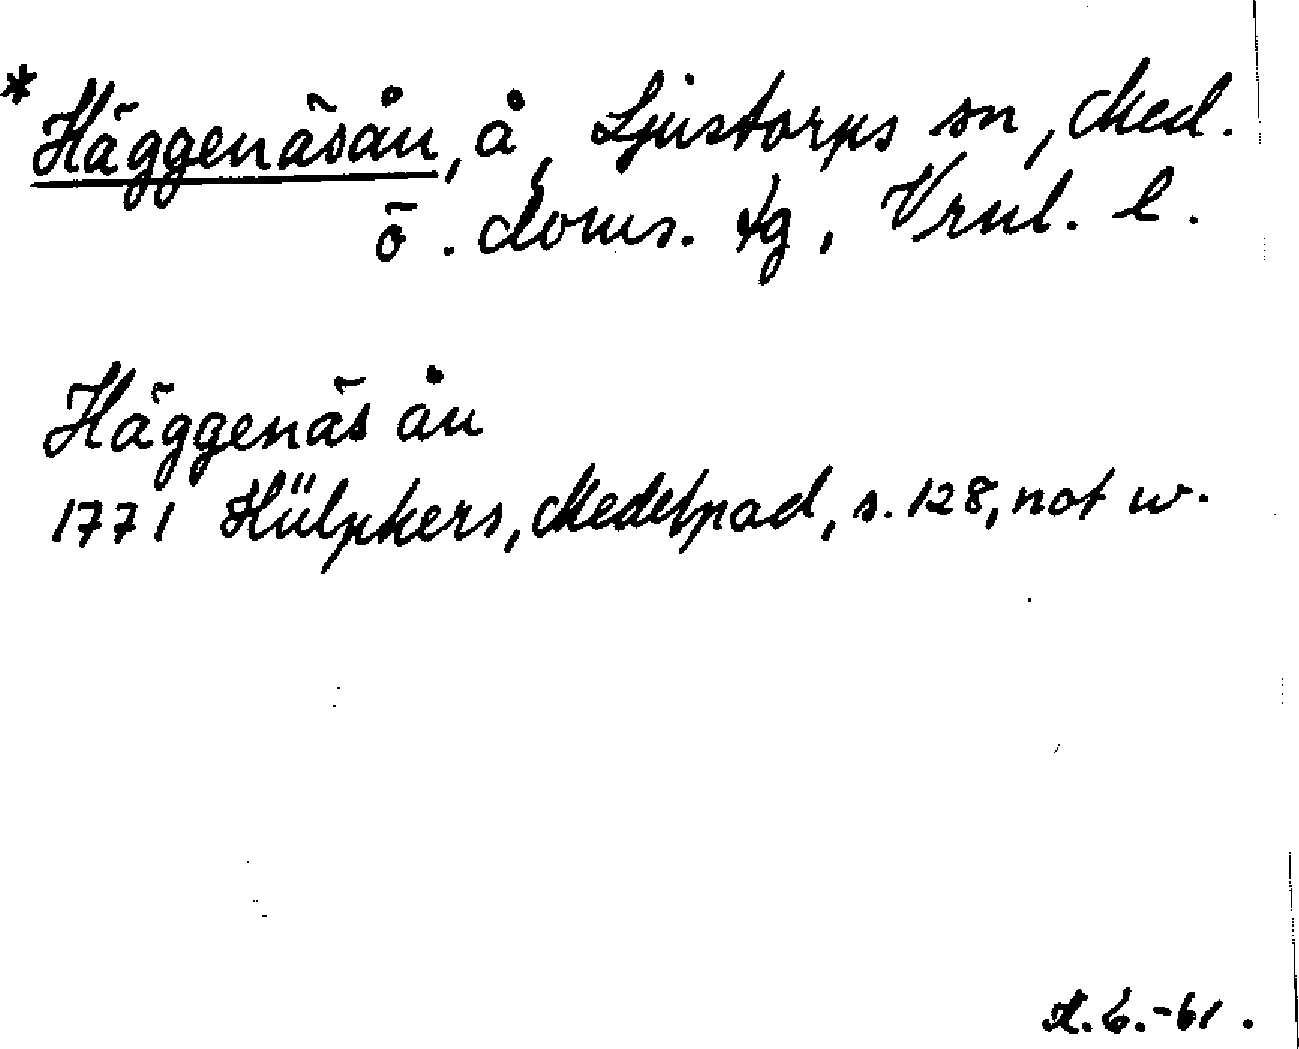 *Häggenäsån, å, Ljustorps sn, Med.
ö. doms. tg, Vrnl. l.
Häggenäs ån
1771 Hülphers, Medelpad, s. 128, not w.
A.6.-61.